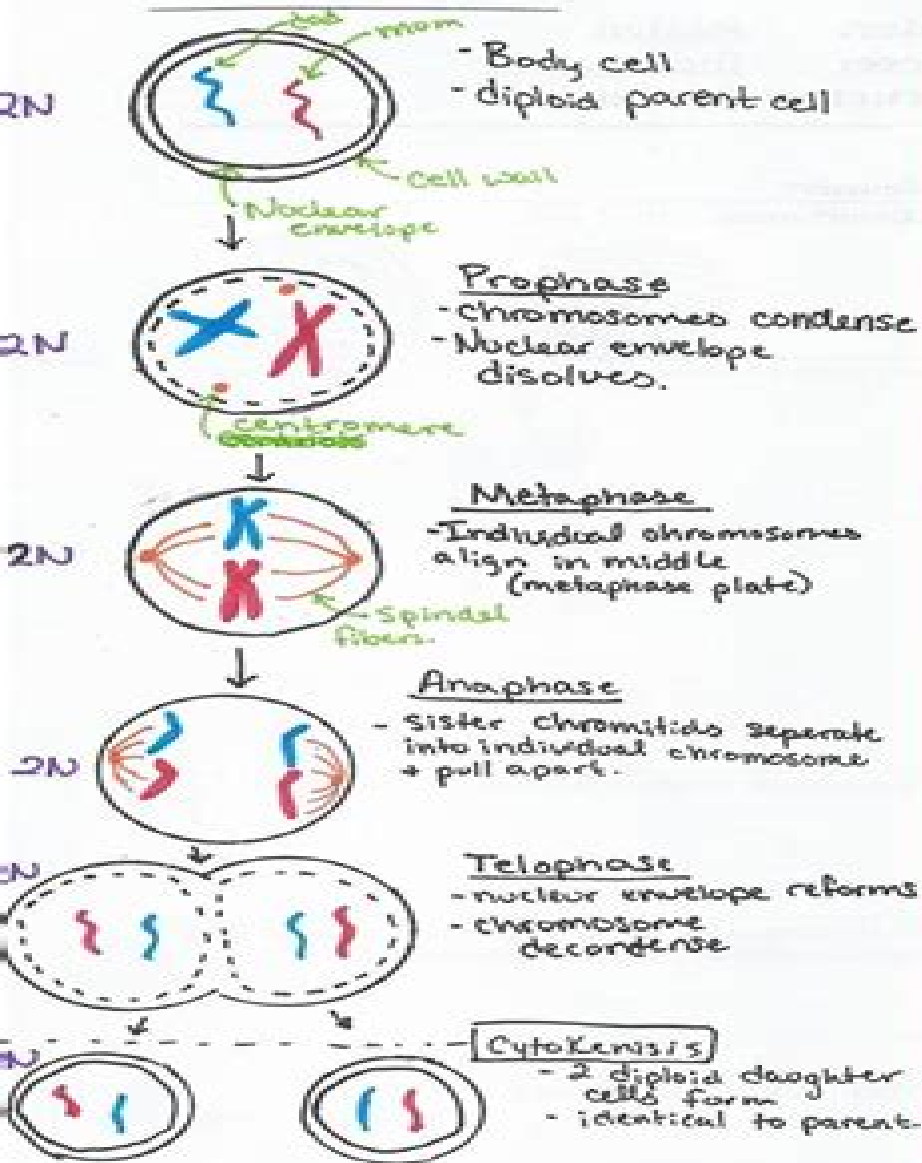 dad
mom
2N
- Body cell
- diploid parent cell
Cell wall
Nuclear
envelope
2N
Prophase
- chromosomes condense
- Nuclear envelope
disolves.
centromere
2N
Metaphase
- Individual chromosomes
align in middle
(metaphase plate)
Spindel
fibers.
2N
Anaphase
- sister chromitids seperate
into individual chromosome
+ pull apart.
Telophase
- nuclear envelope reforms
- chromosome
decondense
CytoKenisis
- 2 diploid daughter
cells form
- identical to parent.